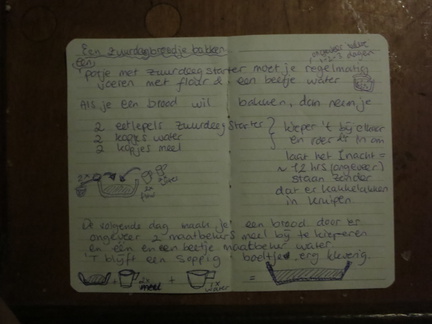 Een zuurdesigbroodje bakken
Een
potje met zuurdeegstarter moet je regelmatig
voeren met flour & een beetje water
Als je een brood wil bakken, dan neem je
2 eetlepels zuurdeegstarter
2 kopjes water
2 kopjes meel
kieper 't bij elkaar
en roer er in om
laat het 1 nacht =
~ 12 hrs (ongeveer)
staan zonder
dat er kakkerlakken
in kruipen
De volgende dag maak je een brood door er
ongeveer 2 maatbekers meel bij te kieperen
en een een beetje maatbeker water
't blijft een soppig boeltje, erg kleverig.
+ 2x meel + 1x water =